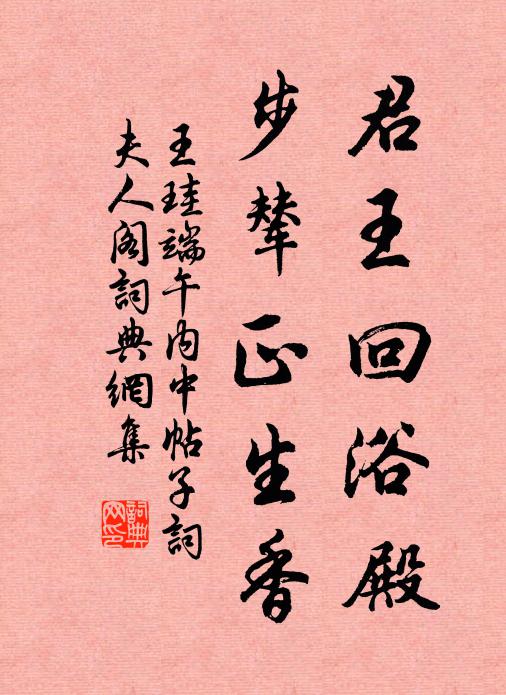 君王回浴殿
步輦正生香
王珪端午内中帖子詞
夫人阁詞典網集
詞典
网印